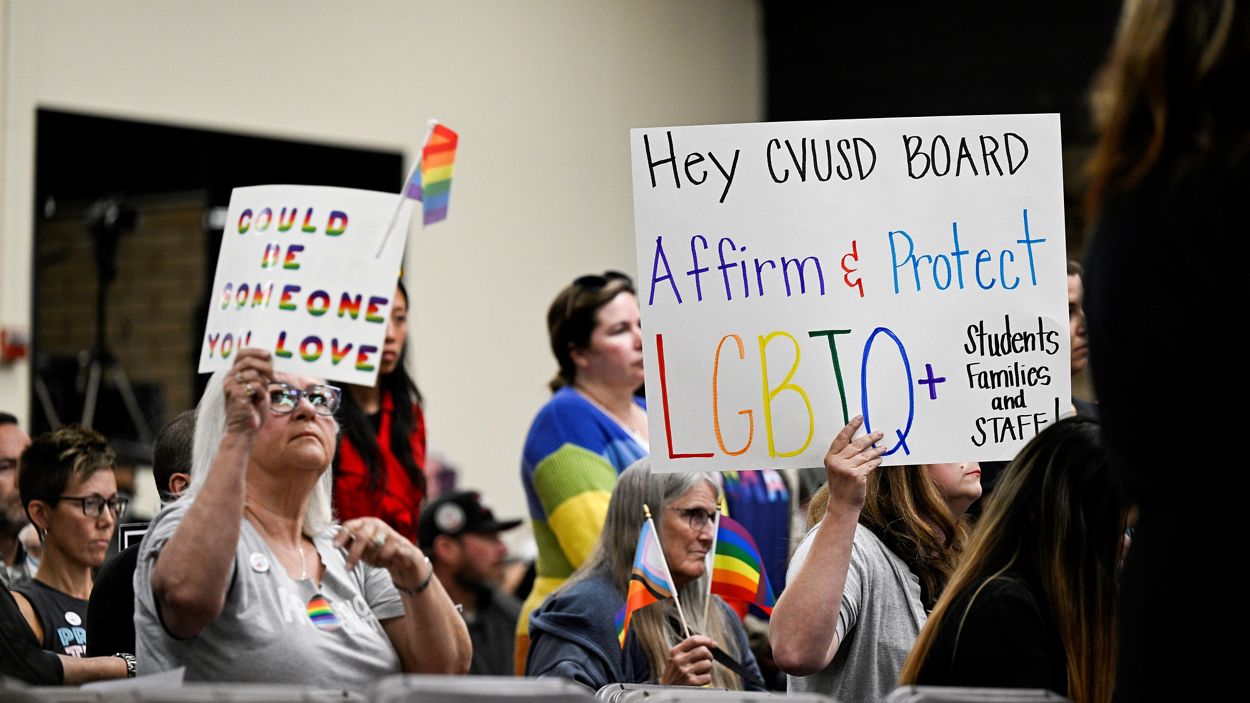 COULD
BE
SOMEONE
YOU LOVE
Hey CVUSD BOARD
Affirm & Protect
LGBTQ+
Students
Families
and
STAFF!